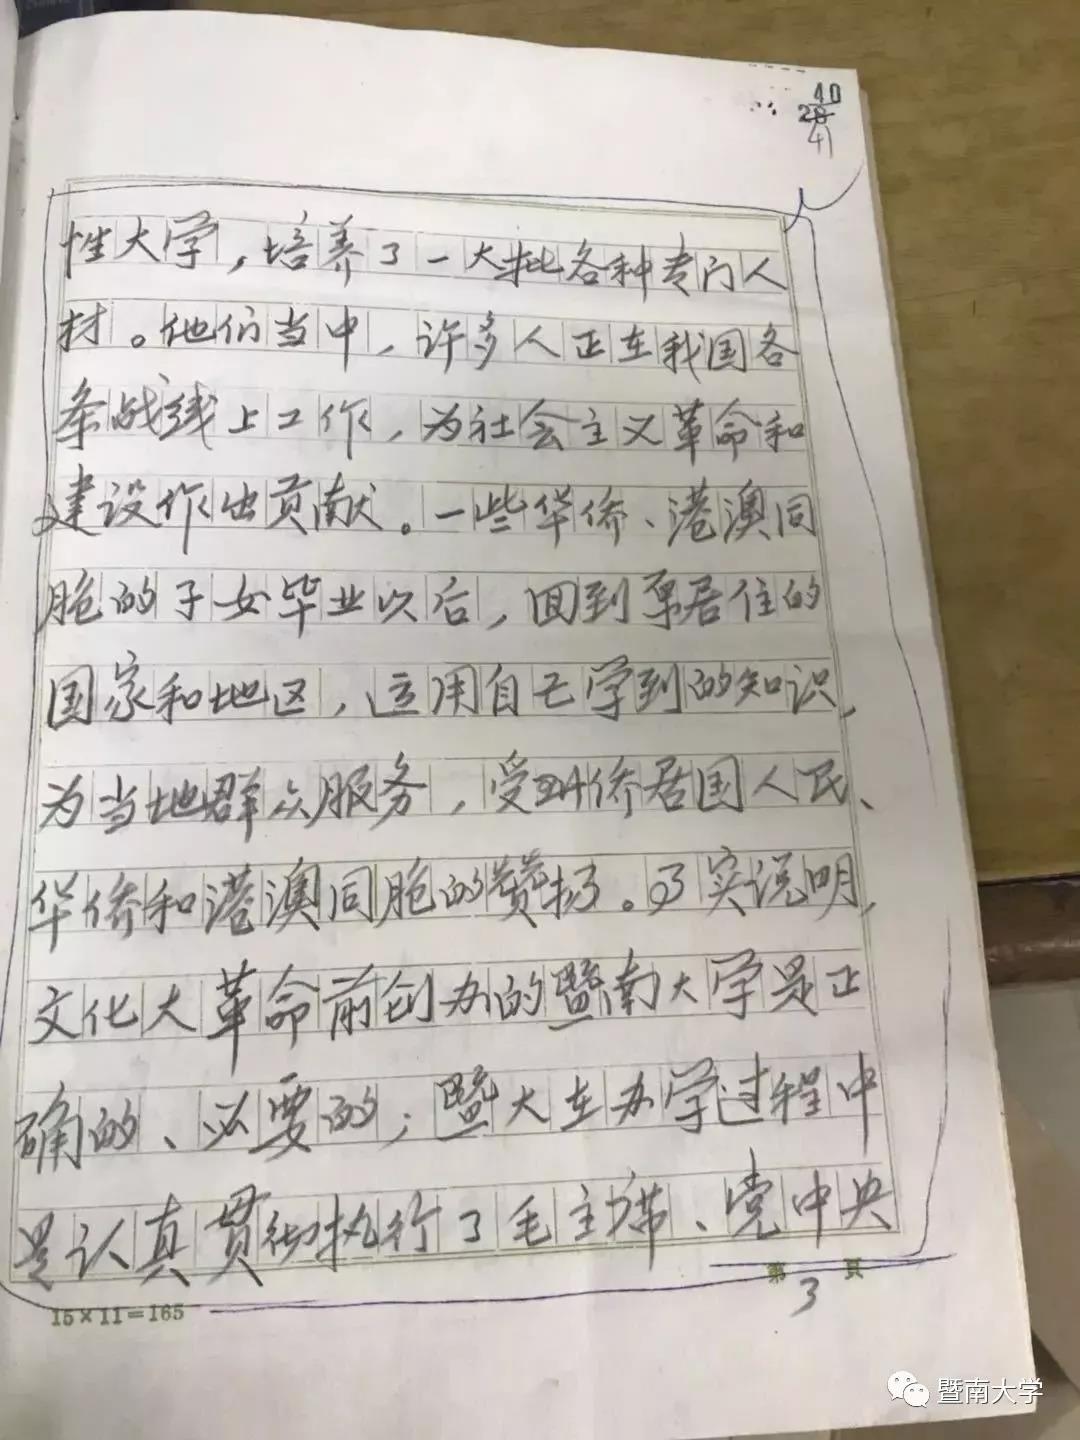 40
28
41
性大学，培养了一大批各种专门人
材。他们当中，许多人正在我国各
条战线上工作，为社会主义革命和
建设作出贡献。一些华侨、港澳同
胞的子女毕业以后，回到原居住的
国家和地区，运用自己学到的知识，
为当地群众服务，受到侨居国人民、
华侨和港澳同胞的赞扬。事实说明，
文化大革命前创办的暨南大学是正
确的、必要的；暨大在办学过程中
是认真贯彻执行了毛主席、党中央
15×11=165
第 3 頁
暨南大学